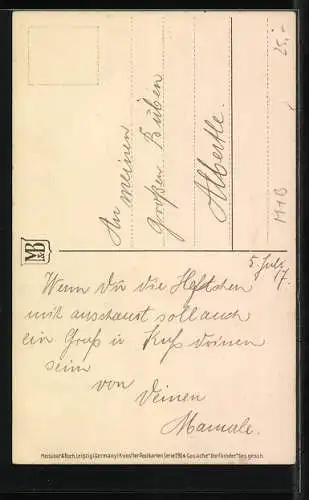 25,-
M+B
An meinen
großen Buben
Albertle.
M&B
5. Juli 17.
Wenn du die Heftchen
mit anschaust soll auch
ein Gruß u Kuß drinnen
sein
von Deinen
Mamale.
Meissner & Buch, Leipzig (Germany) Künstler-Postkarten Serie 1964 Gouache "Dorfkinder" Ges. gesch.